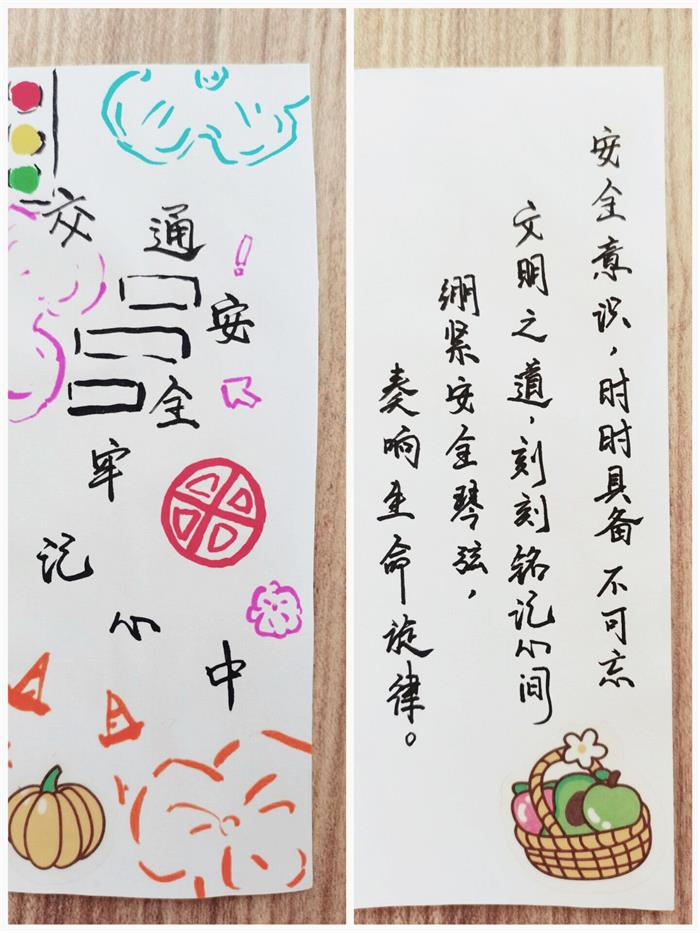 交通安全牢记心中
安全意识，时时具备不可忘
文明之道，刻刻铭记心间
绷紧安全琴弦，
奏响生命旋律。